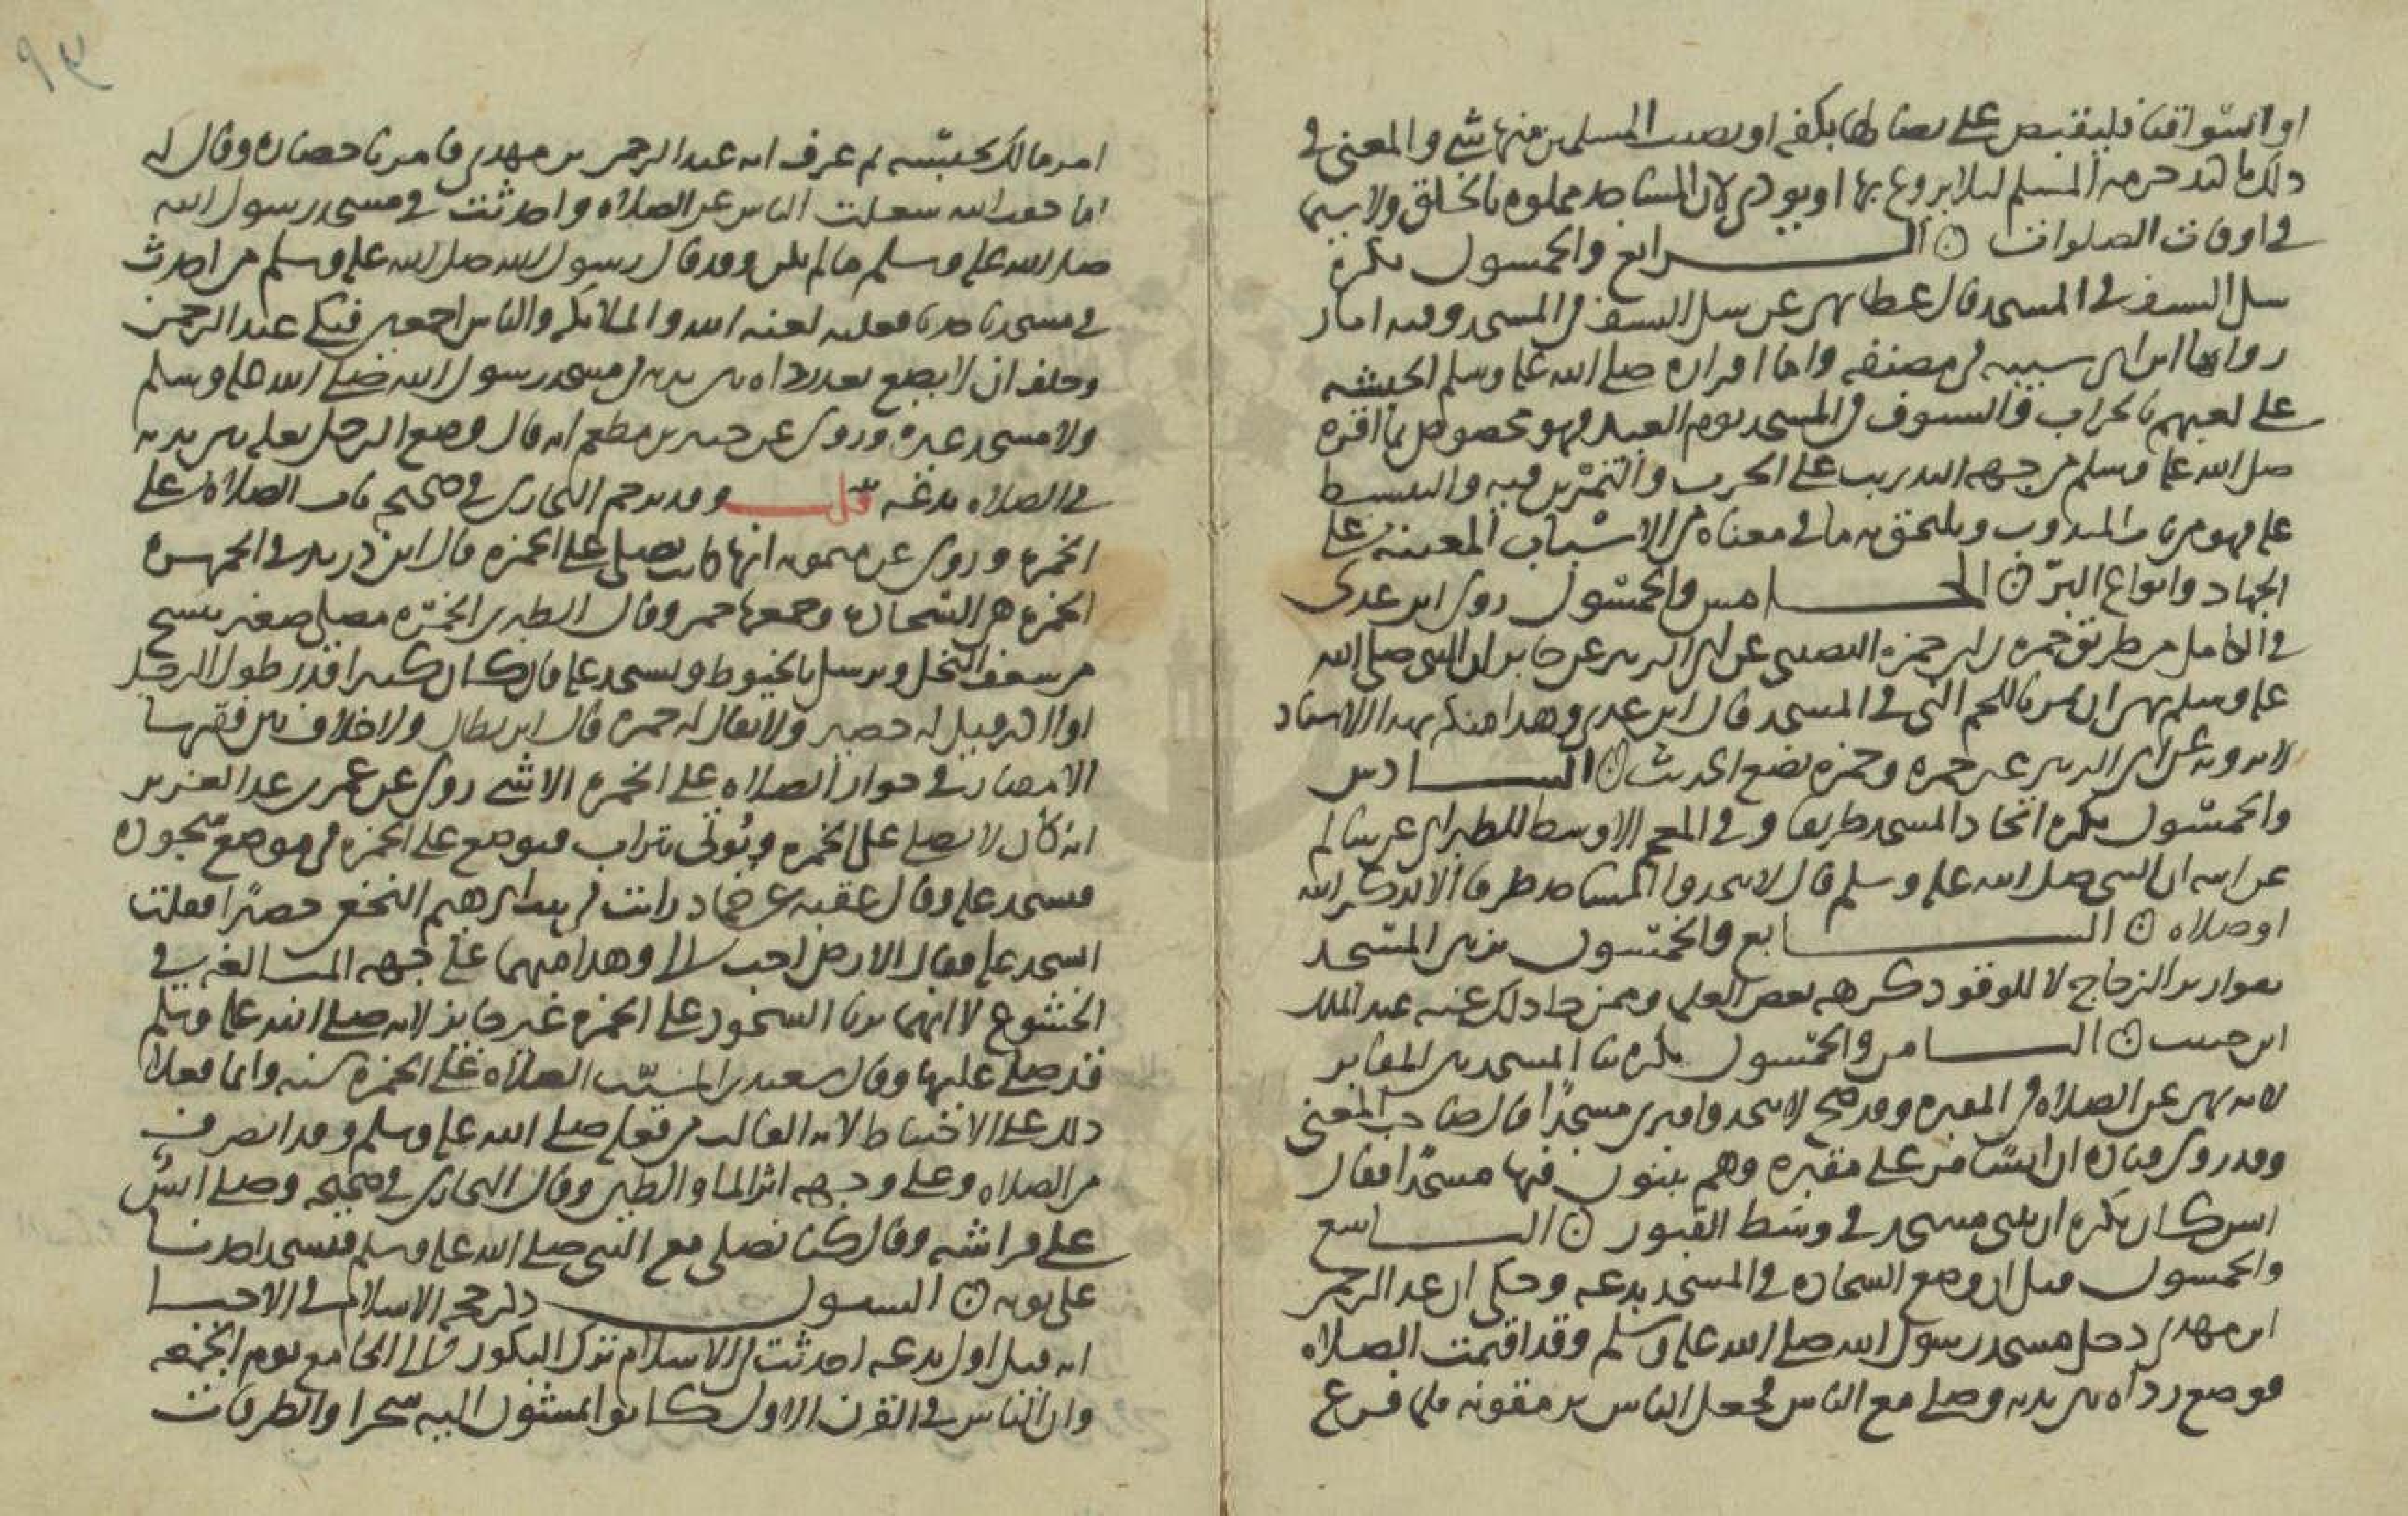 او اسواقنا فليقبض على نصالها بكفه او يصيب المسلمين منها شي والمعنى في
ذلك تاكيد حرمه المسلم ليلا يروع بها او يوذى لان المساجد مملوه بالخلق ولا سيما
في اوقات الصلوات ۞ الرابع والخمسون يكره
سل السيف في المسجد قال عطا نهى عن سل السيف في المسجد وفيه اثار
رواها ابن ابي شيبه في مصنفه واما اقراره صلى الله عليه وسلم الحبشه
على لعبهم بالحراب والسيوف في المسجد يوم العيد فهو مخصوص بما اقره
صلى الله عليه وسلم من جهه التدريب على الحرب والتمرين فيه والتنشيط
عليه فهو من باب المندوب ويلتحق به ما في معناه من الاسباب المعينه على
الجهاد وانواع البر ۞ الخامس والخمسون روى ابن عدي
في الكامل من طريق حمزه بن ابي حمزه النصيبي عن ابي الزبير عن جابر ان النبي صلى الله
عليه وسلم نهى ان يمر باللحم الني في المسجد قال ابن عدي وهذا منكر بهذا الاسناد
لا يرويه عن ابي الزبير غير حمزه وحمزه يضع الحديث ۞ السادس
والخمسون يكره اتخاذ المسجد طريقا وفي المعجم الاوسط للطبراني عن سالم
عن ابيه ان النبي صلى الله عليه وسلم قال لا تتخذوا المساجد طرقا الا لذكر الله
او صلاه ۞ السابع والخمسون تزيين المسجد
بقوارير الزجاج لا للوقود كرهه بعض العلما وممن جا ذلك عنه عبد الملك
ابن حبيب ۞ الثامن والخمسون يكره بنا المسجد بين المقابر
لانه نهى عن الصلاه في المقبره وقد صح لا تتخذوا قبري مسجدا قال صاحب المغني
وقد روى قتاده ان انسا مر على مقبره وهم يبنون فيها مسجدا فقال
انس كان يكره ان يبنى مسجد في وسط القبور ۞ التاسع
والخمسون قيل ان وضع السجاده في المسجد بدعه وحكي ان عبد الرحمن
ابن مهدي دخل مسجد رسول الله صلى الله عليه وسلم وقد اقيمت الصلاه
فوضع رداه بين يديه وصلى مع الناس فجعل الناس يرمقونه فلما فرغ
امر مالك بحبسه ثم عرف انه عبد الرحمن بن مهدي فامر باحضاره وقال له
اما خفت الله شغلت الناس عن الصلاه واحدثت في مسجد رسول الله
صلى الله عليه وسلم ما لم يكن وقد قال رسول الله صلى الله عليه وسلم من احدث
في مسجدنا حدثا فعليه لعنه الله والملائكه والناس اجمعين فبكى عبد الرحمن
وحلف ان لا يضع بعد رداه بين يديه في مسجد رسول الله صلى الله عليه وسلم
ولا مسجد غيره وروى عن جبير بن مطعم انه قال وضع الرجل نعله بين يديه
في الصلاه بدعه قلت وقد ترجم البخاري في صحيحه باب الصلاه على
الخمره وروى عن ميمونه انها كانت تصلي على الخمره قال ابن دريد في الجمهره
الخمره هي السجاده وجمعها خمر وقال الطبري الخمره مصلى صغير ينسج
من سعف النخل ويرسل بالخيوط ويسجد عليه فان كان كبيرا قدر طول الرجل
او اكثر قيل له حصير ولا يقال له خمره قال ابن بطال ولا خلاف بين فقها
الامصار في جواز الصلاه على الخمره الا شي روى عن عمر بن عبد العزيز
انه كان لا يصلي على الخمره ويوتى بتراب فيوضع على الخمره في موضع سجوده
فيسجد عليه وقال عقبه عن حماد رايت في بيت ابرهيم النخعي حصيرا فقلت
اتسجد عليه فقال الارض احب الي وهذا منهما على جهه المبالغه في
الخشوع لا انهما يريا السجود على الخمره غير جايز لانه صلى الله عليه وسلم
قد صلى عليها وقال سعيد بن المسيب الصلاه على الخمره سنه وانما فعلا
ذلك على الاختياط لانه الغالب من فعله صلى الله عليه وسلم وقد انصرف
من الصلاه وعلى وجهه اثر الما والطين وقال البخاري في صحيحه وصلى انس
على فراشه وقال كنا نصلي مع النبي صلى الله عليه وسلم فيسجد احدنا
على ثوبه ۞ الستون ذكر حجه الاسلام في الاحيا
انه قيل اول بدعه احدثت في الاسلام ترك البكور الى الجامع يوم الجمعه
وان الناس في القرن الاول كانوا يمشون اليه سحرا والطرقات